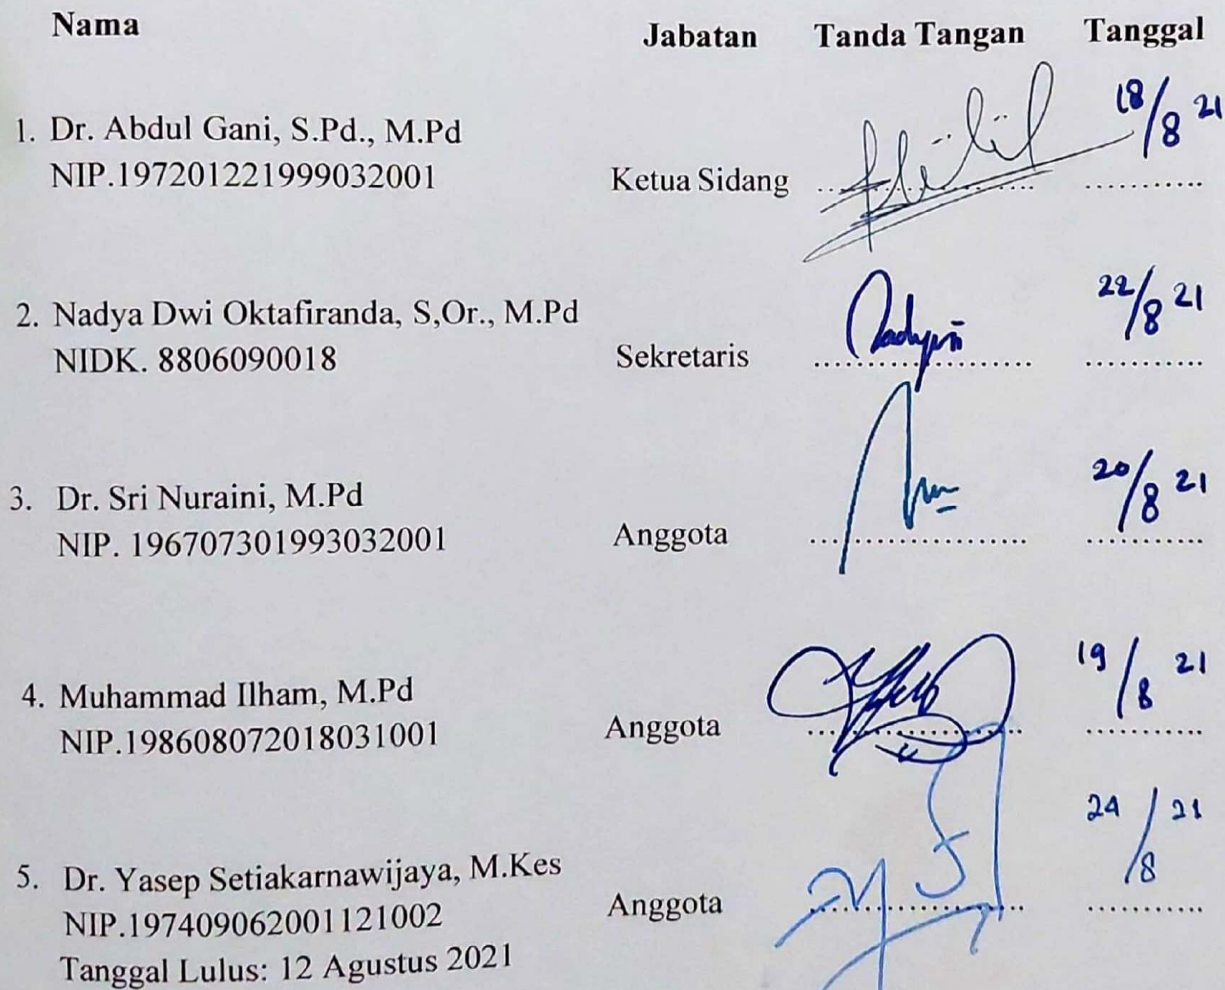 Nama Jabatan Tanda Tangan Tanggal
1. Dr. Abdul Gani, S.Pd., M.Pd 18/8 21
NIP.197201221999032001 Ketua Sidang ...........
2. Nadya Dwi Oktafiranda, S,Or., M.Pd 22/8 21
NIDK. 8806090018 Sekretaris ...........
3. Dr. Sri Nuraini, M.Pd 20/8 21
NIP. 196707301993032001 Anggota ...........
4. Muhammad Ilham, M.Pd 19/8 21
NIP.198608072018031001 Anggota ...........
24/8 21
5. Dr. Yasep Setiakarnawijaya, M.Kes
NIP.197409062001121002 Anggota ...........
Tanggal Lulus: 12 Agustus 2021